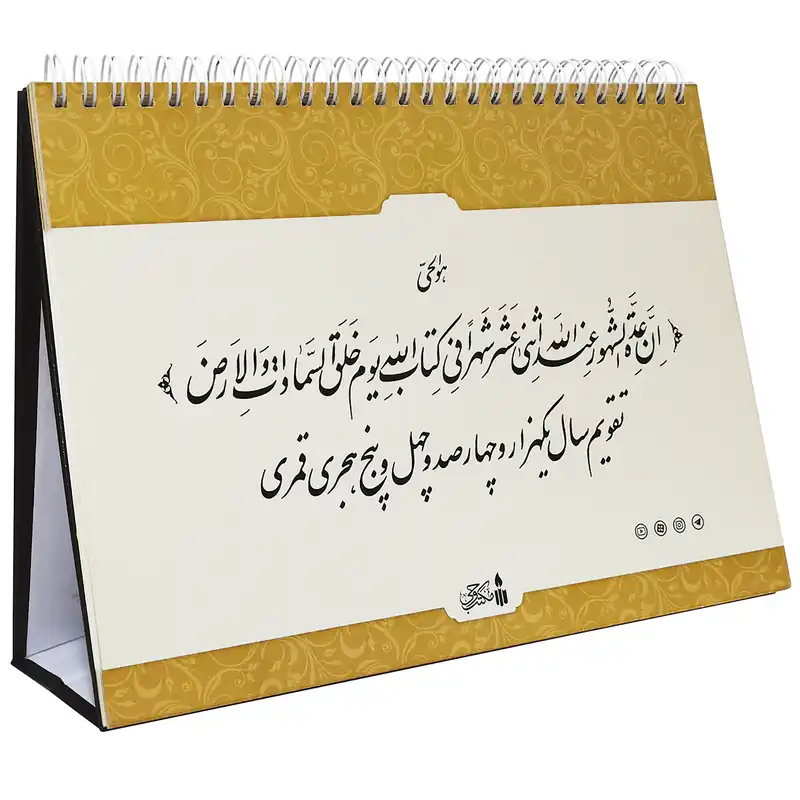 هوالحیّ
﴿ اِنَّ عِدَّةَ الشُّهُورِ عِندَ اللّهِ اثنی عَشَرَ شَهراً فی کِتابِ اللّهِ یَومَ خَلَقَ السَّماواتِ وَ الاَرضَ ﴾
تقویم سال یکهزار و چهارصد و چهل و پنج هجری قمری
مکتب وحی